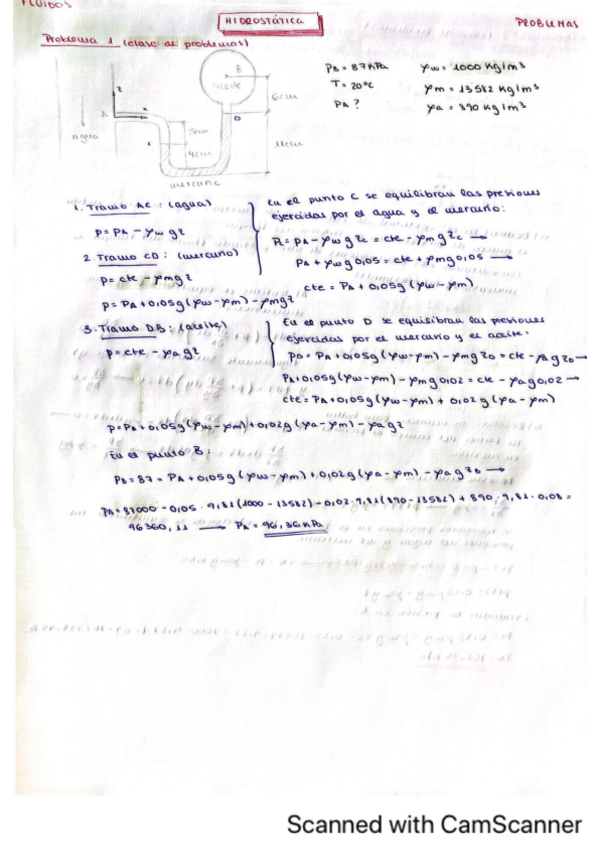 FLUIDOS
HIDROSTÁTICA
PROBLEMAS
Problema 1 (clase de problemas)
PB = 87 KPa
T = 20ºC
PA ?
ρw = 1000 Kg/m³
ρm = 13582 Kg/m³
ρa = 890 Kg/m³
B
aceite
z
A
x
agua
5cm
C
4cm
D
6cm
11cm
mercurio
1. Tramo AC: (agua)
P = PA - ρw g z
2. Tramo CD: (mercurio)
P = cte - ρm g z
P = PA + 0,05 g (ρw - ρm) - ρm g z
En el punto C se equilibran las presiones
ejercidas por el agua y el mercurio:
Pc = PA - ρw g zc = cte - ρm g zc →
PA + ρw g 0,05 = cte + ρm g 0,05 →
cte = PA + 0,05 g (ρw - ρm)
3. Tramo DB: (aceite)
P = cte - ρa g z
En el punto D se equilibran las presiones
ejercidas por el mercurio y el aceite:
PD = PA + 0,05 g (ρw - ρm) - ρm g zD = cte - ρa g zD →
PA + 0,05 g (ρw - ρm) - ρm g 0,02 = cte - ρa g 0,02 →
cte = PA + 0,05 g (ρw - ρm) + 0,02 g (ρa - ρm)
P = PA + 0,05 g (ρw - ρm) + 0,02 g (ρa - ρm) - ρa g z
En el punto B:
PB = 87 = PA + 0,05 g (ρw - ρm) + 0,02 g (ρa - ρm) - ρa g zb →
PA = 87000 - 0,05 · 9,81 (1000 - 13582) - 0,02 · 9,81 (890 - 13582) + 890 · 9,81 · 0,08 =
96360,11 → PA = 96,36 KPa
Scanned with CamScanner